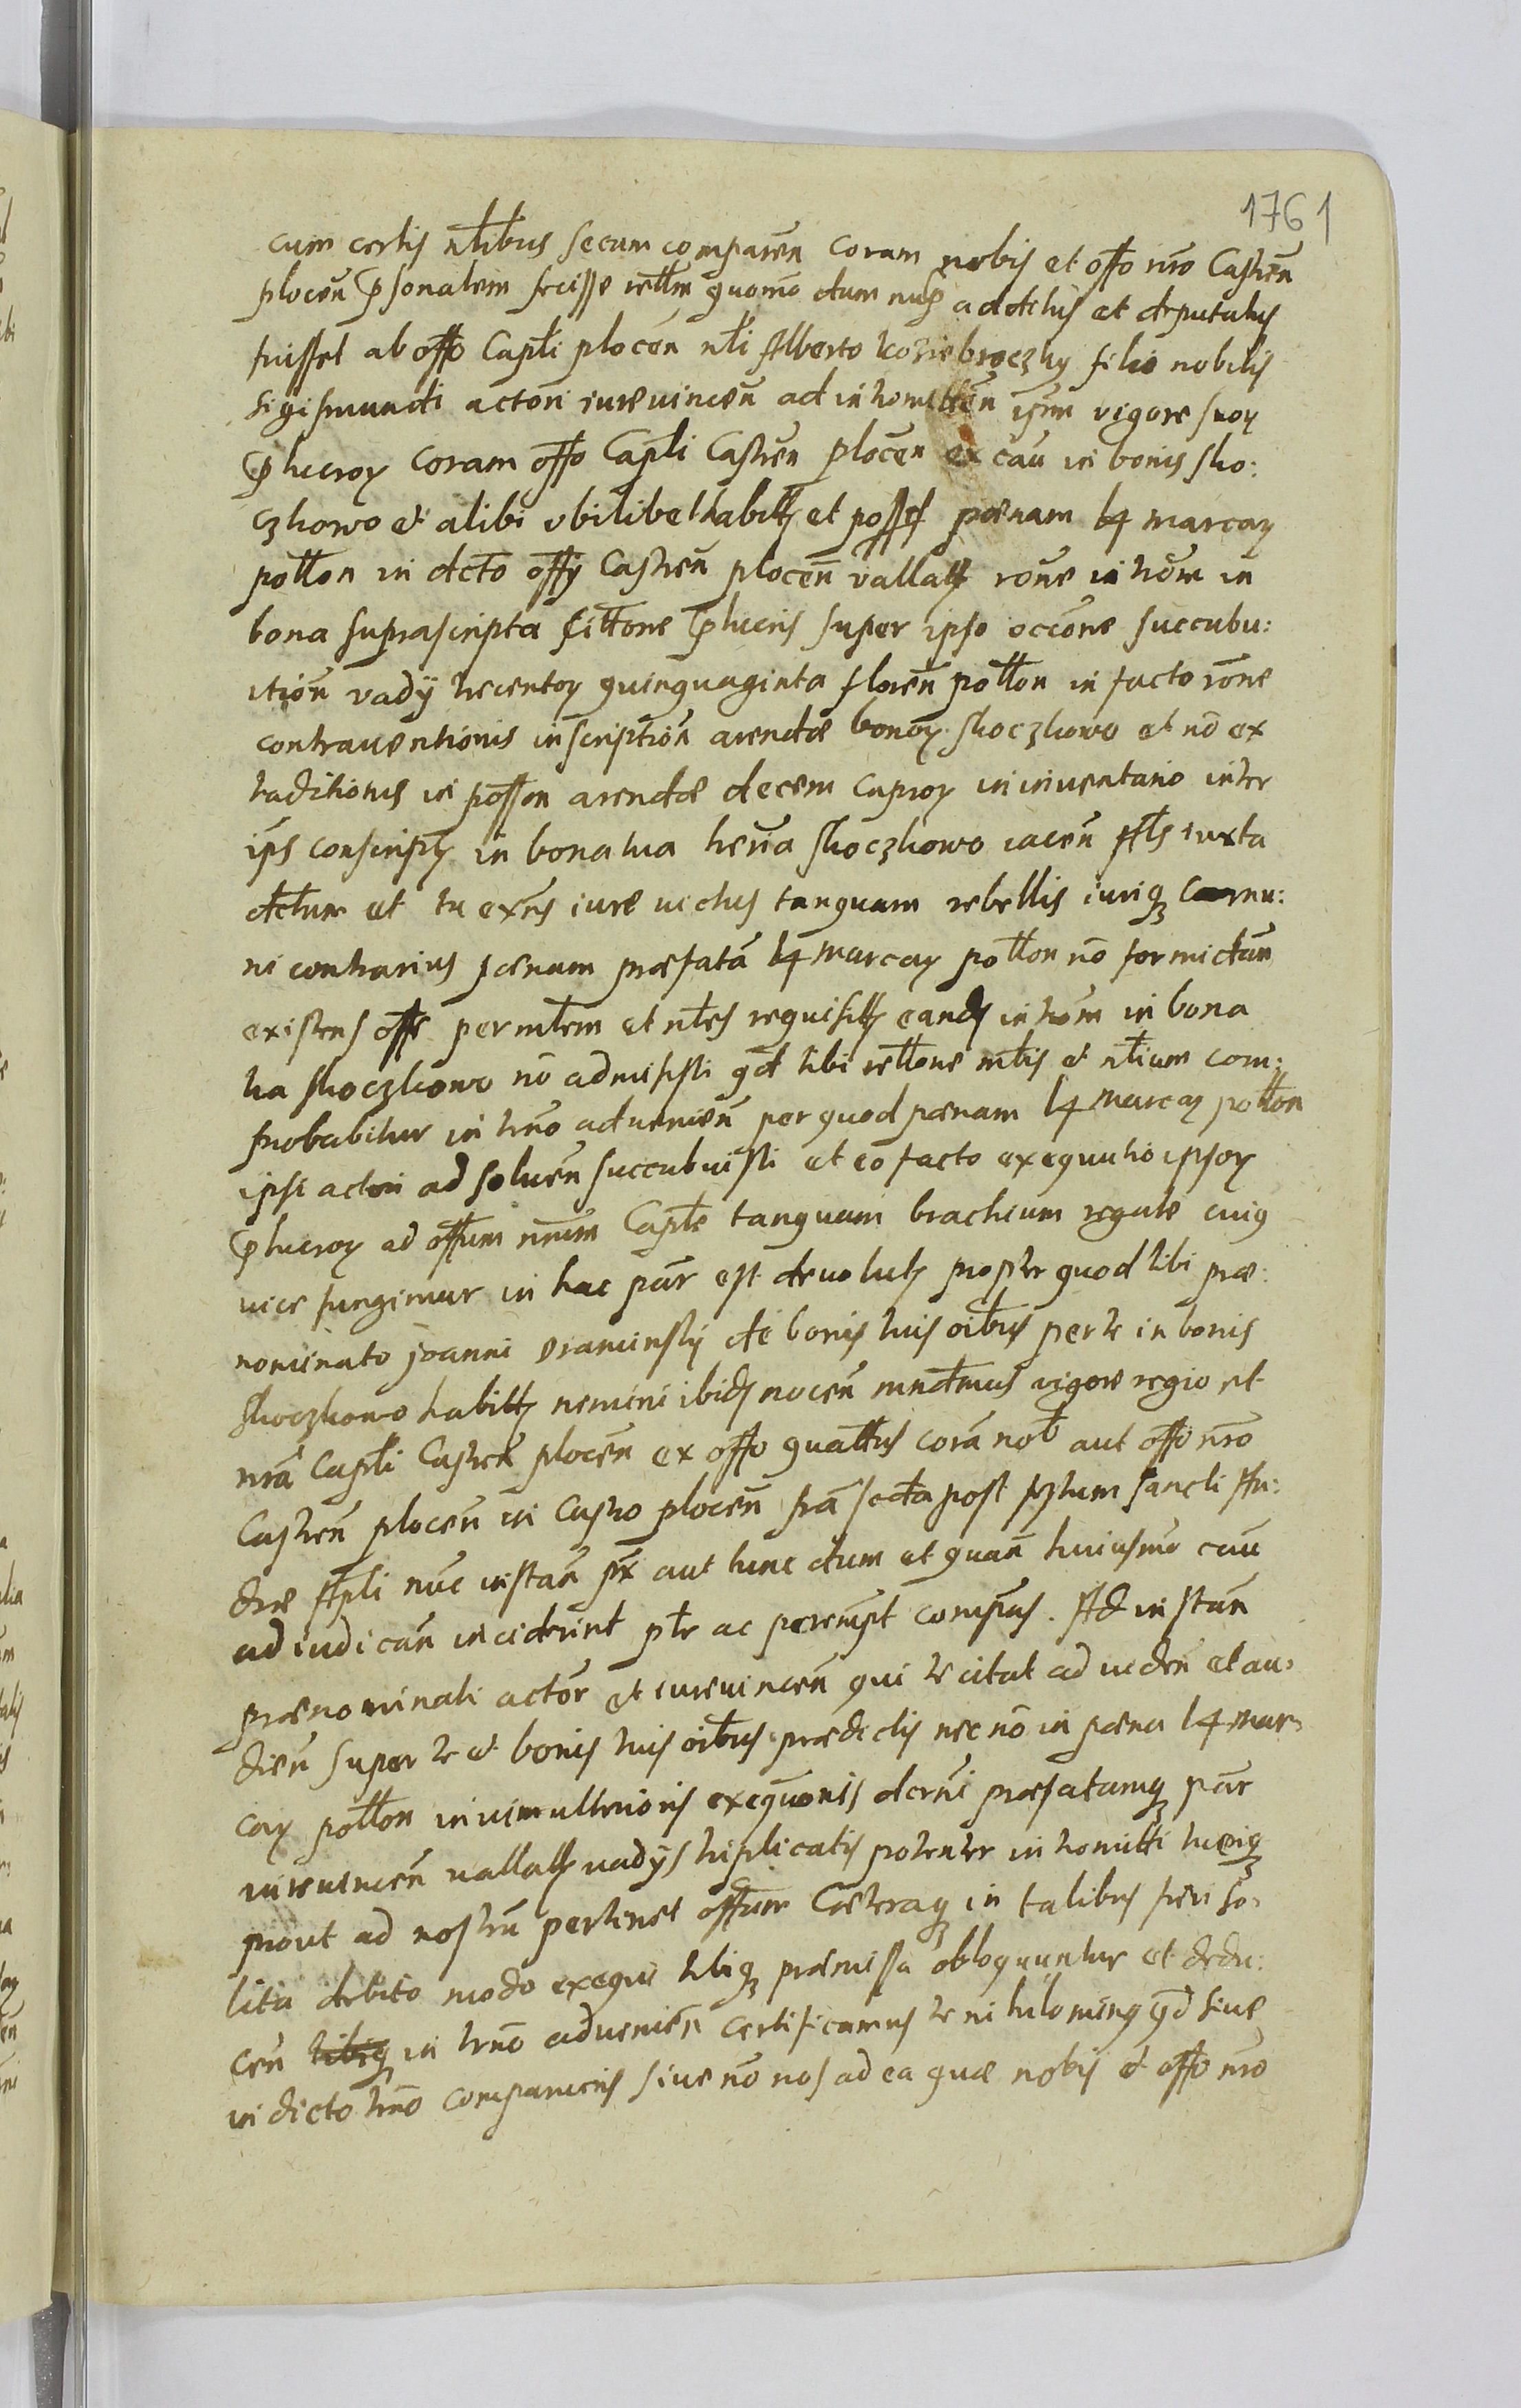 1761
cum certis nłibus secum comparen̄ coram nobis et offo nr̄o Castren̄
plocen̄ psonalem fecisse rełłm quomō dum nup additus et deputatus
fuisset ab offo Capłi plocen̄ nłi Alberto koziebroczky filio nobilis
Sigismundi actori iurevincen̄ ad intromitten̄ ipm̄ vigore suoȝ
plucroȝ coram offo Capłi Castren̄ plocen̄ ex cau in bonis sko:
czkowo et alibi ubilibet habitȝ et poss pænam 14 marcaȝ
połłon in dcto offy Castren̄ plocen̄ vallatȝ rōne introm in
bona suprascripta plucris super ipso occōne succubu:
vady trecentoȝ quinquaginta floren̄ połłon in facto rōne
contraventionis inscription̄ arendæ bonoȝ skoczkowo et nō ex
traditionis in posson arendæ decem caproȝ in inventario inter
ips conscriptȝ in bona tua skoczkowo iacen̄ iuxta
dctum et tu exn̄s iure victus tanquam rebellis iuriqȝ comu:
ni contrarius pænam præfatā 14 marcaȝ połłon nō formidan̄
existens offo per młem et nłes requisitȝ eandȝ introm in bona
tua skoczkowo nō admisisti qd tibi rełłone młis et nłium com:
probabitur in trnō advenien̄ per quod pænam 14 marcaȝ połłon
ipsi actori ad solven̄ succubuisti et eo facto exequutio ipsoȝ
plucroȝ ad offum nr̄um Capłe tanquam brachium regale cuiq
vice fungimur in hac par est devolutȝ propter quod tibi præ:
nominato Joanni Draminsky de bonis tuis oībus per te in bonis
skoczkowo habitȝ nemini ibidȝ nocen̄ mndmus vigore regio et
nr̄ā Capłi Castren̄ plocen̄ ex offo quattus corā nob aut offo nr̄o
Castren̄ plocen̄ in Castro plocen̄ frā secta post festum Sancti An:
dræ Apłi nūc instan̄ px aut tunc dum et quan̄ huiusmō cau
adiudican̄ inciderint płr ac perempt compeas. Ad instan̄
prænominati actor et iurevincen̄ qui te citat ad viden̄ et au:
dien̄ super te et bonis tuis oībus prædictis nec nō in pæna 14 mar:
caȝ połłon in vim ulterioris exequonis dcrni præfatamqȝ par
iurevincen̄ vallatȝ vadys triplicatis potenter intromitti
prout ad nostrū pertinet offum Cæteraqȝ in talibus fieri so:
lita debito modo exequi tibiqȝ præmissa obloquuntur et dedu:
cen̄ tibiqȝ in trnō advenien̄ certificamus te nihilominq qd sive
in dicto trnō comparueris sive nō nos ad ea quæ nobis et offo nr̄o